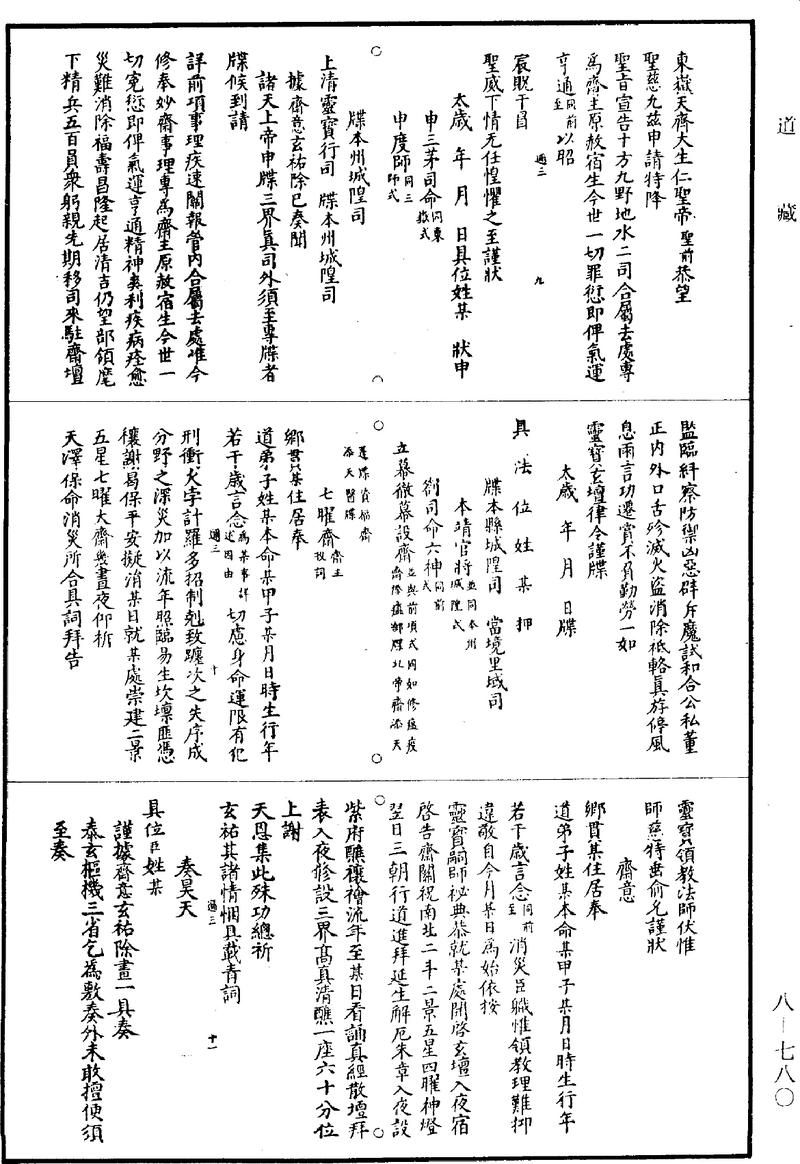 道藏
東嶽天齊大生仁聖帝 聖前恭望
聖慈允茲申請特降
聖旨宣告十方九野地水二司合屬去處專
為齋主原赦宿生今世一切罪愆即俾氣運
亨通至同前以昭
過三 九
宸貺干冒
聖威下情无任惶懼之至謹狀
太歲 年 月 日具位姓某 狀申
申三茅司命同東嶽式
申度師同三師式
牒本州城隍司
上清靈寶行司 牒本州城隍司
據齋意玄祐除已奏聞
諸天上帝申牒三界真司外須至專牒者
牒候到請
詳前項事理疾速關報管內合屬去處唯今
修奉妙齋事理專為齋主原赦宿生今世一
切冤愆即俾氣運亨通精神爽利疾病痊愈
災難消除福壽昌隆起居清吉仍望部領麾
下精兵五百員眾躬親先期移司來駐齋壇
監臨糾察防禦凶惡辟斥魔試和合公私董
正內外口舌殄滅火盜消除祗輅真斿停風
息雨言功遷賞不負勤勞一如
靈寶玄壇律令謹牒
太歲 年 月 日牒
具法位姓某押
牒本縣城隍司 當境里域司
本靖官將並同本州城隍式
劄司命六神同前式
立幕徽幕設齋並與前項式同如修瘟疫齋除瘟部牒北帝齋添天
蓬牒資福齋添天醫牒
七曜齋齋主投詞
鄉貫某住居奉
道弟子姓某本命某甲子某月日時生行年
若干歲言念為某事詳述因由切慮身命運限有犯
過三 十
刑衝火孛計羅多招制剋致躔次之失序成
分野之深災加以流年照臨易生坎壈匪憑
禳謝曷保平安擬消某日就某處崇建二景
五星七曜大齋幾晝夜仰祈
天澤保命消災所合具詞拜告
靈寶領教法師伏惟
師慈特垂俞允謹狀
齋意
鄉貫某住居奉
道弟子姓某本命某甲子某月日時生行年
若干歲言念至同前消災臣職惟領教理難抑
違敬自今月某日為始依按
靈寶嗣師祕典恭就某處開啓玄壇入夜宿
啓告齋關祝南北二斗二景五星四曜神燈
翌日三朝行道進拜延生解厄朱章入夜設
紫府醮禳禬流年至某日看誦真經散壇拜
表入夜修設三界高真清醮一座六十分位
上謝
天恩集此殊功總祈
玄祐其諸情悃具載青詞
過三 十一
奏昊天
具位臣姓某
謹據齋意玄祐除畫一具奏
泰玄樞機三省乞為敷奏外未敢擅便須
至奏
八―七八〇